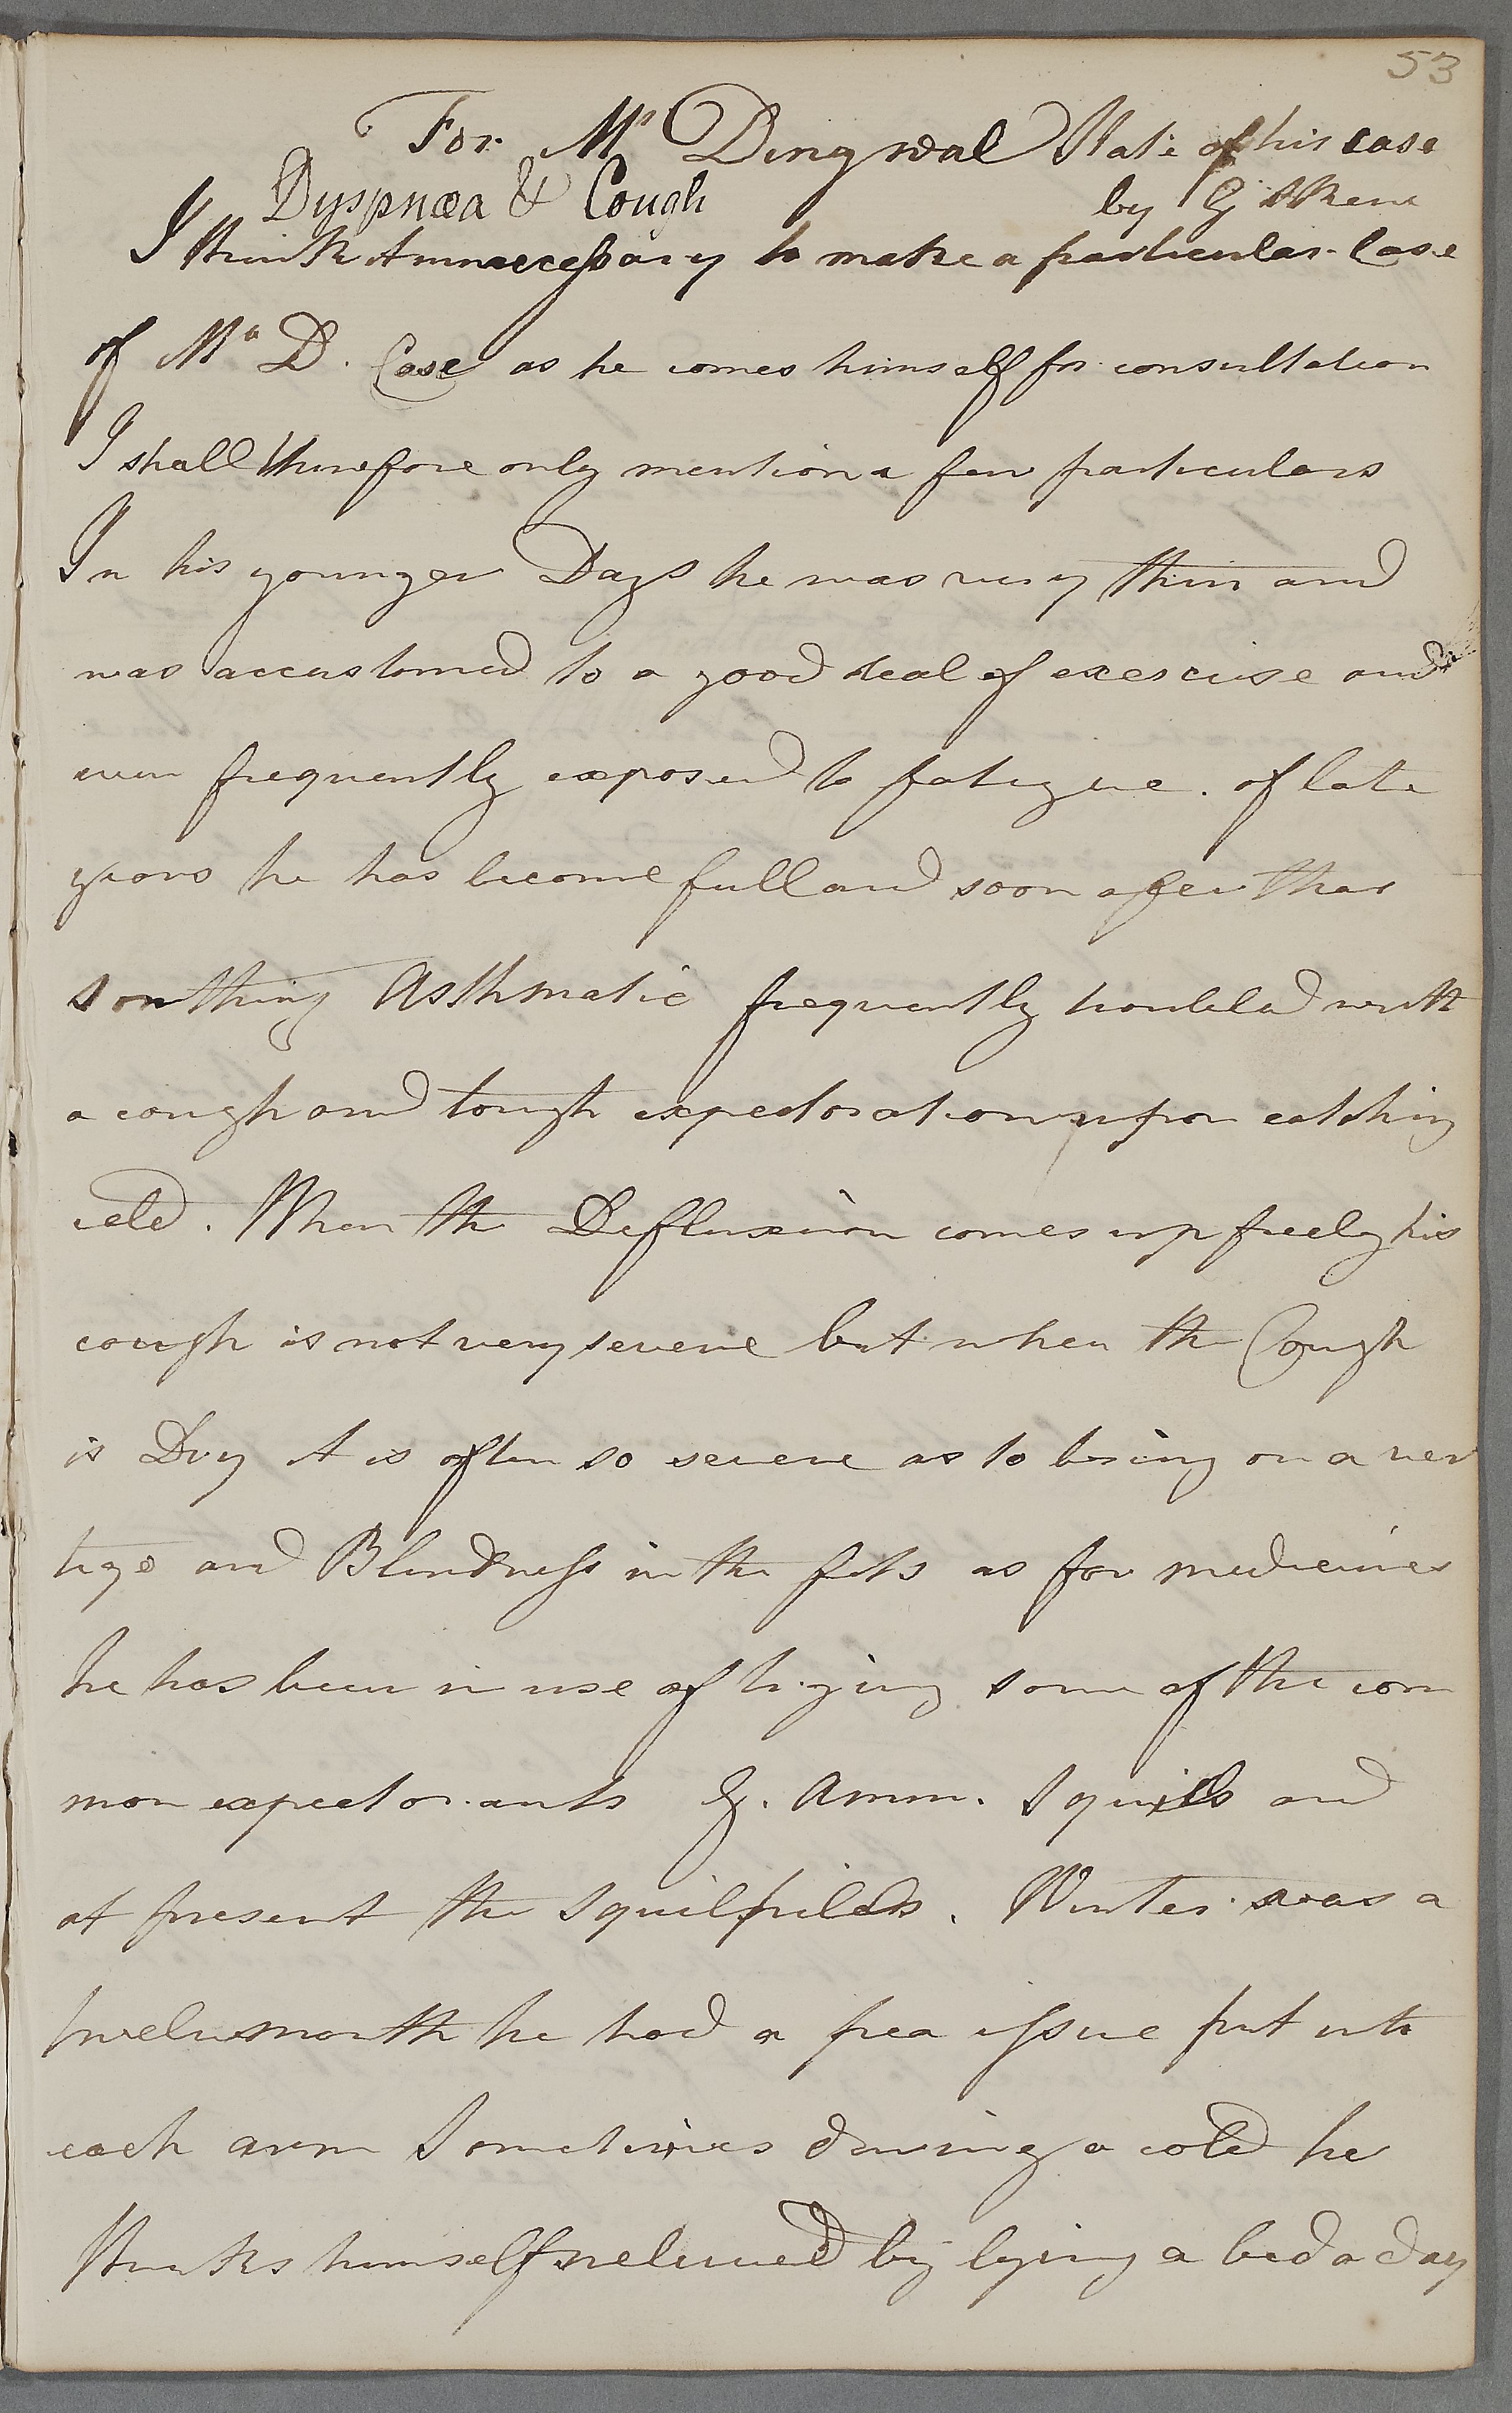 53
For Mr Dingwal State of his case
Dyspnœa & Cough by G Skene
I think it unnecessary to make a particular Case
of Mr D. Case as he comes himself for consultation
I shall therefore only mention a few particulars
In his younger Days he was very thin and
was accustomed to a good deal of exercise and
even frequently exposed to fatigue. of late
years he has become full and soon after that
somthing Asthmatic frequently troubled with
a cough and tough expectoration upon catching
cold. When the Defluxion comes up freely his
cough is not very severe but when the Cough
is Dry it is often so severe as to bring on a ver
tigo and Blindness in the fits as for medicines
he has been in use of trying some of the com
mon expectorants G. Amm. Squills and
at present the Squil pills. Winter was a
twelvemonth he had a pea issue put into
each arm Sometimes during a cold he
thinks himself relieved by lying a bed a day